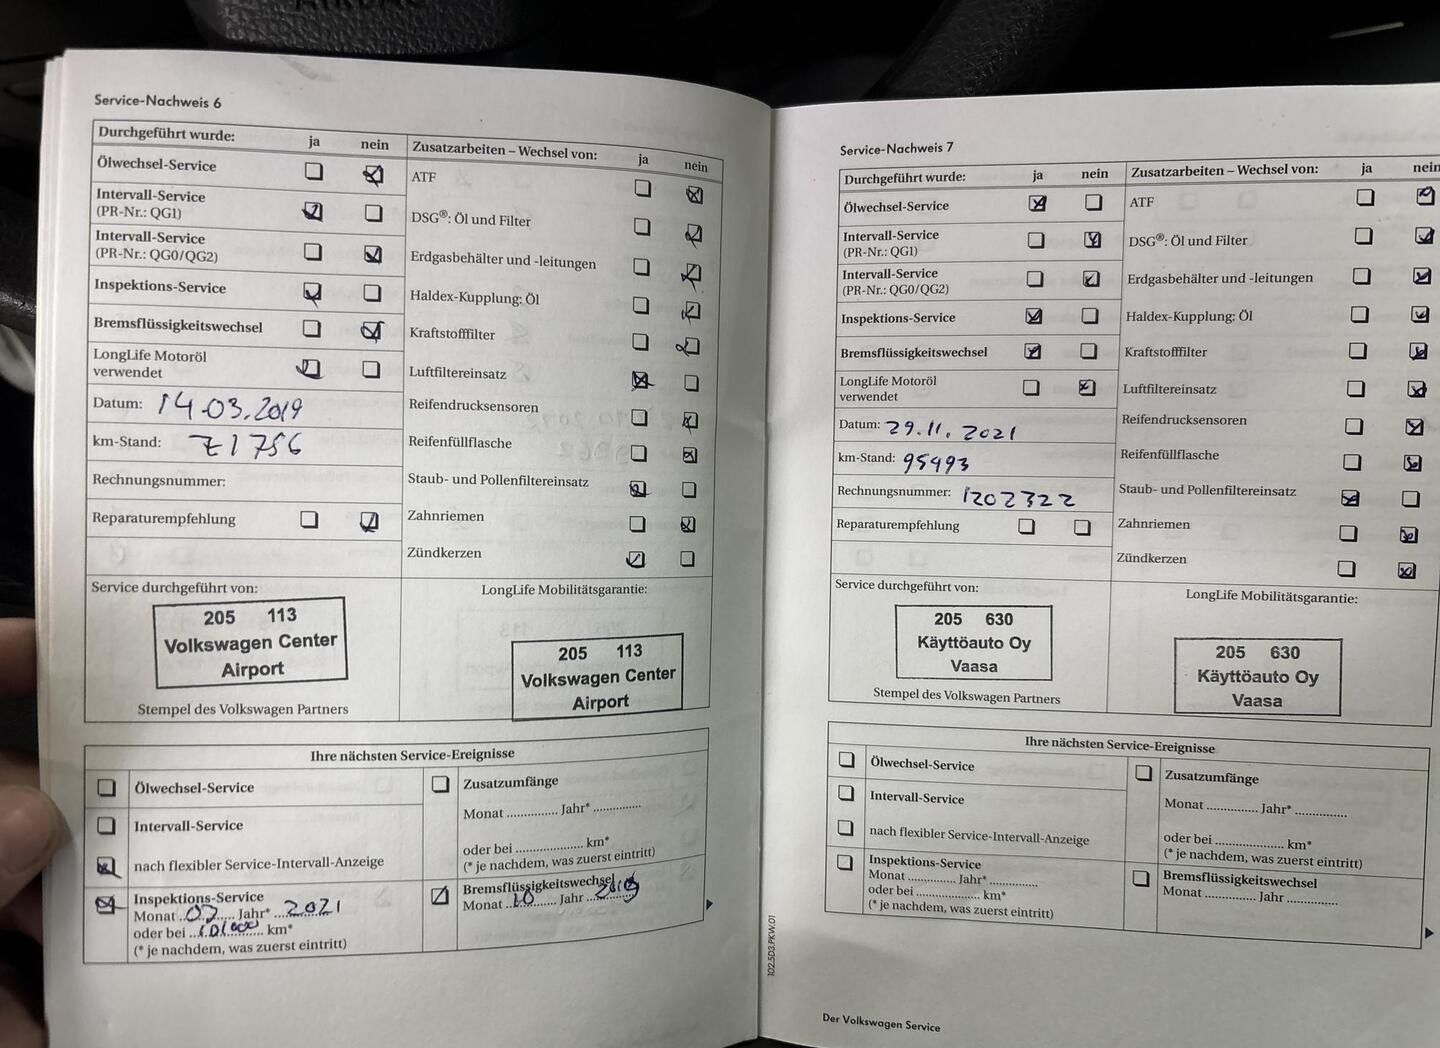 AIRBAG
Service-Nachweis 6
Durchgeführt wurde: ja nein
Ölwechsel-Service
Intervall-Service
(PR-Nr.: QG1)
Intervall-Service
(PR-Nr.: QG0/QG2)
Inspektions-Service
Bremsflüssigkeitswechsel
LongLife Motoröl
verwendet
Datum: 14.03.2019
km-Stand: 71756
Rechnungsnummer:
Reparaturempfehlung
Zusatzarbeiten – Wechsel von: ja nein
ATF
DSG®: Öl und Filter
Erdgasbehälter und -leitungen
Haldex-Kupplung: Öl
Kraftstofffilter
Luftfiltereinsatz
Reifendrucksensoren
Reifenfüllflasche
Staub- und Pollenfiltereinsatz
Zahnriemen
Zündkerzen
Service durchgeführt von:
205 113
Volkswagen Center
Airport
Stempel des Volkswagen Partners
LongLife Mobilitätsgarantie:
205 113
Volkswagen Center
Airport
Ihre nächsten Service-Ereignisse
Ölwechsel-Service
Intervall-Service
nach flexibler Service-Intervall-Anzeige
Inspektions-Service
Monat ..03...... Jahr* ...2021
oder bei ...101000....... km*
(* je nachdem, was zuerst eintritt)
Zusatzumfänge
Monat .............. Jahr* ..............
oder bei .................... km*
(* je nachdem, was zuerst eintritt)
Bremsflüssigkeitswechsel
Monat ..10......... Jahr ..2019
Service-Nachweis 7
Durchgeführt wurde: ja nein
Ölwechsel-Service
Intervall-Service
(PR-Nr.: QG1)
Intervall-Service
(PR-Nr.: QG0/QG2)
Inspektions-Service
Bremsflüssigkeitswechsel
LongLife Motoröl
verwendet
Datum: 29.11.2021
km-Stand: 95493
Rechnungsnummer: 1202322
Reparaturempfehlung
Zusatzarbeiten – Wechsel von: ja nein
ATF
DSG®: Öl und Filter
Erdgasbehälter und -leitungen
Haldex-Kupplung: Öl
Kraftstofffilter
Luftfiltereinsatz
Reifendrucksensoren
Reifenfüllflasche
Staub- und Pollenfiltereinsatz
Zahnriemen
Zündkerzen
Service durchgeführt von:
205 630
Käyttöauto Oy
Vaasa
Stempel des Volkswagen Partners
LongLife Mobilitätsgarantie:
205 630
Käyttöauto Oy
Vaasa
Ihre nächsten Service-Ereignisse
Ölwechsel-Service
Intervall-Service
nach flexibler Service-Intervall-Anzeige
Inspektions-Service
Monat .............. Jahr* ..............
oder bei .................... km*
(* je nachdem, was zuerst eintritt)
Zusatzumfänge
Monat .............. Jahr* ..............
oder bei .................... km*
(* je nachdem, was zuerst eintritt)
Bremsflüssigkeitswechsel
Monat .............. Jahr ..............
102.5D3.PKW.01
Der Volkswagen Service